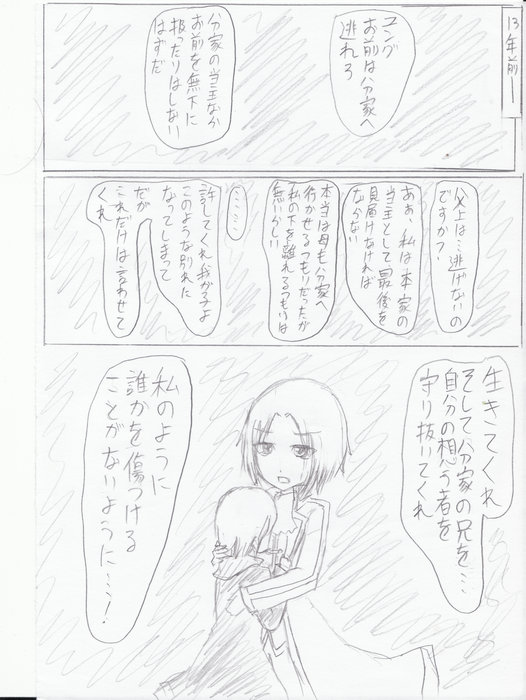 13年前―
ユング
お前は分家へ
逃れろ
分家の当主なら
お前を無下に
扱ったりはしない
はずだ
父上は…逃げないの
ですか?
あぁ、私は本家の
当主として最後を
見届けなければ
ならない
本当は母も分家へ
行かせるつもりだったが
私の下を離れるつもりは
無いらしい
……
許してくれ、我が子よ
このような別れに
なってしまって
だが
これだけは言わせて
くれ
生きてくれ
そして分家の兄を…
自分の想う者を
守り抜いてくれ
私のように
誰かを傷つける
ことがないように…!